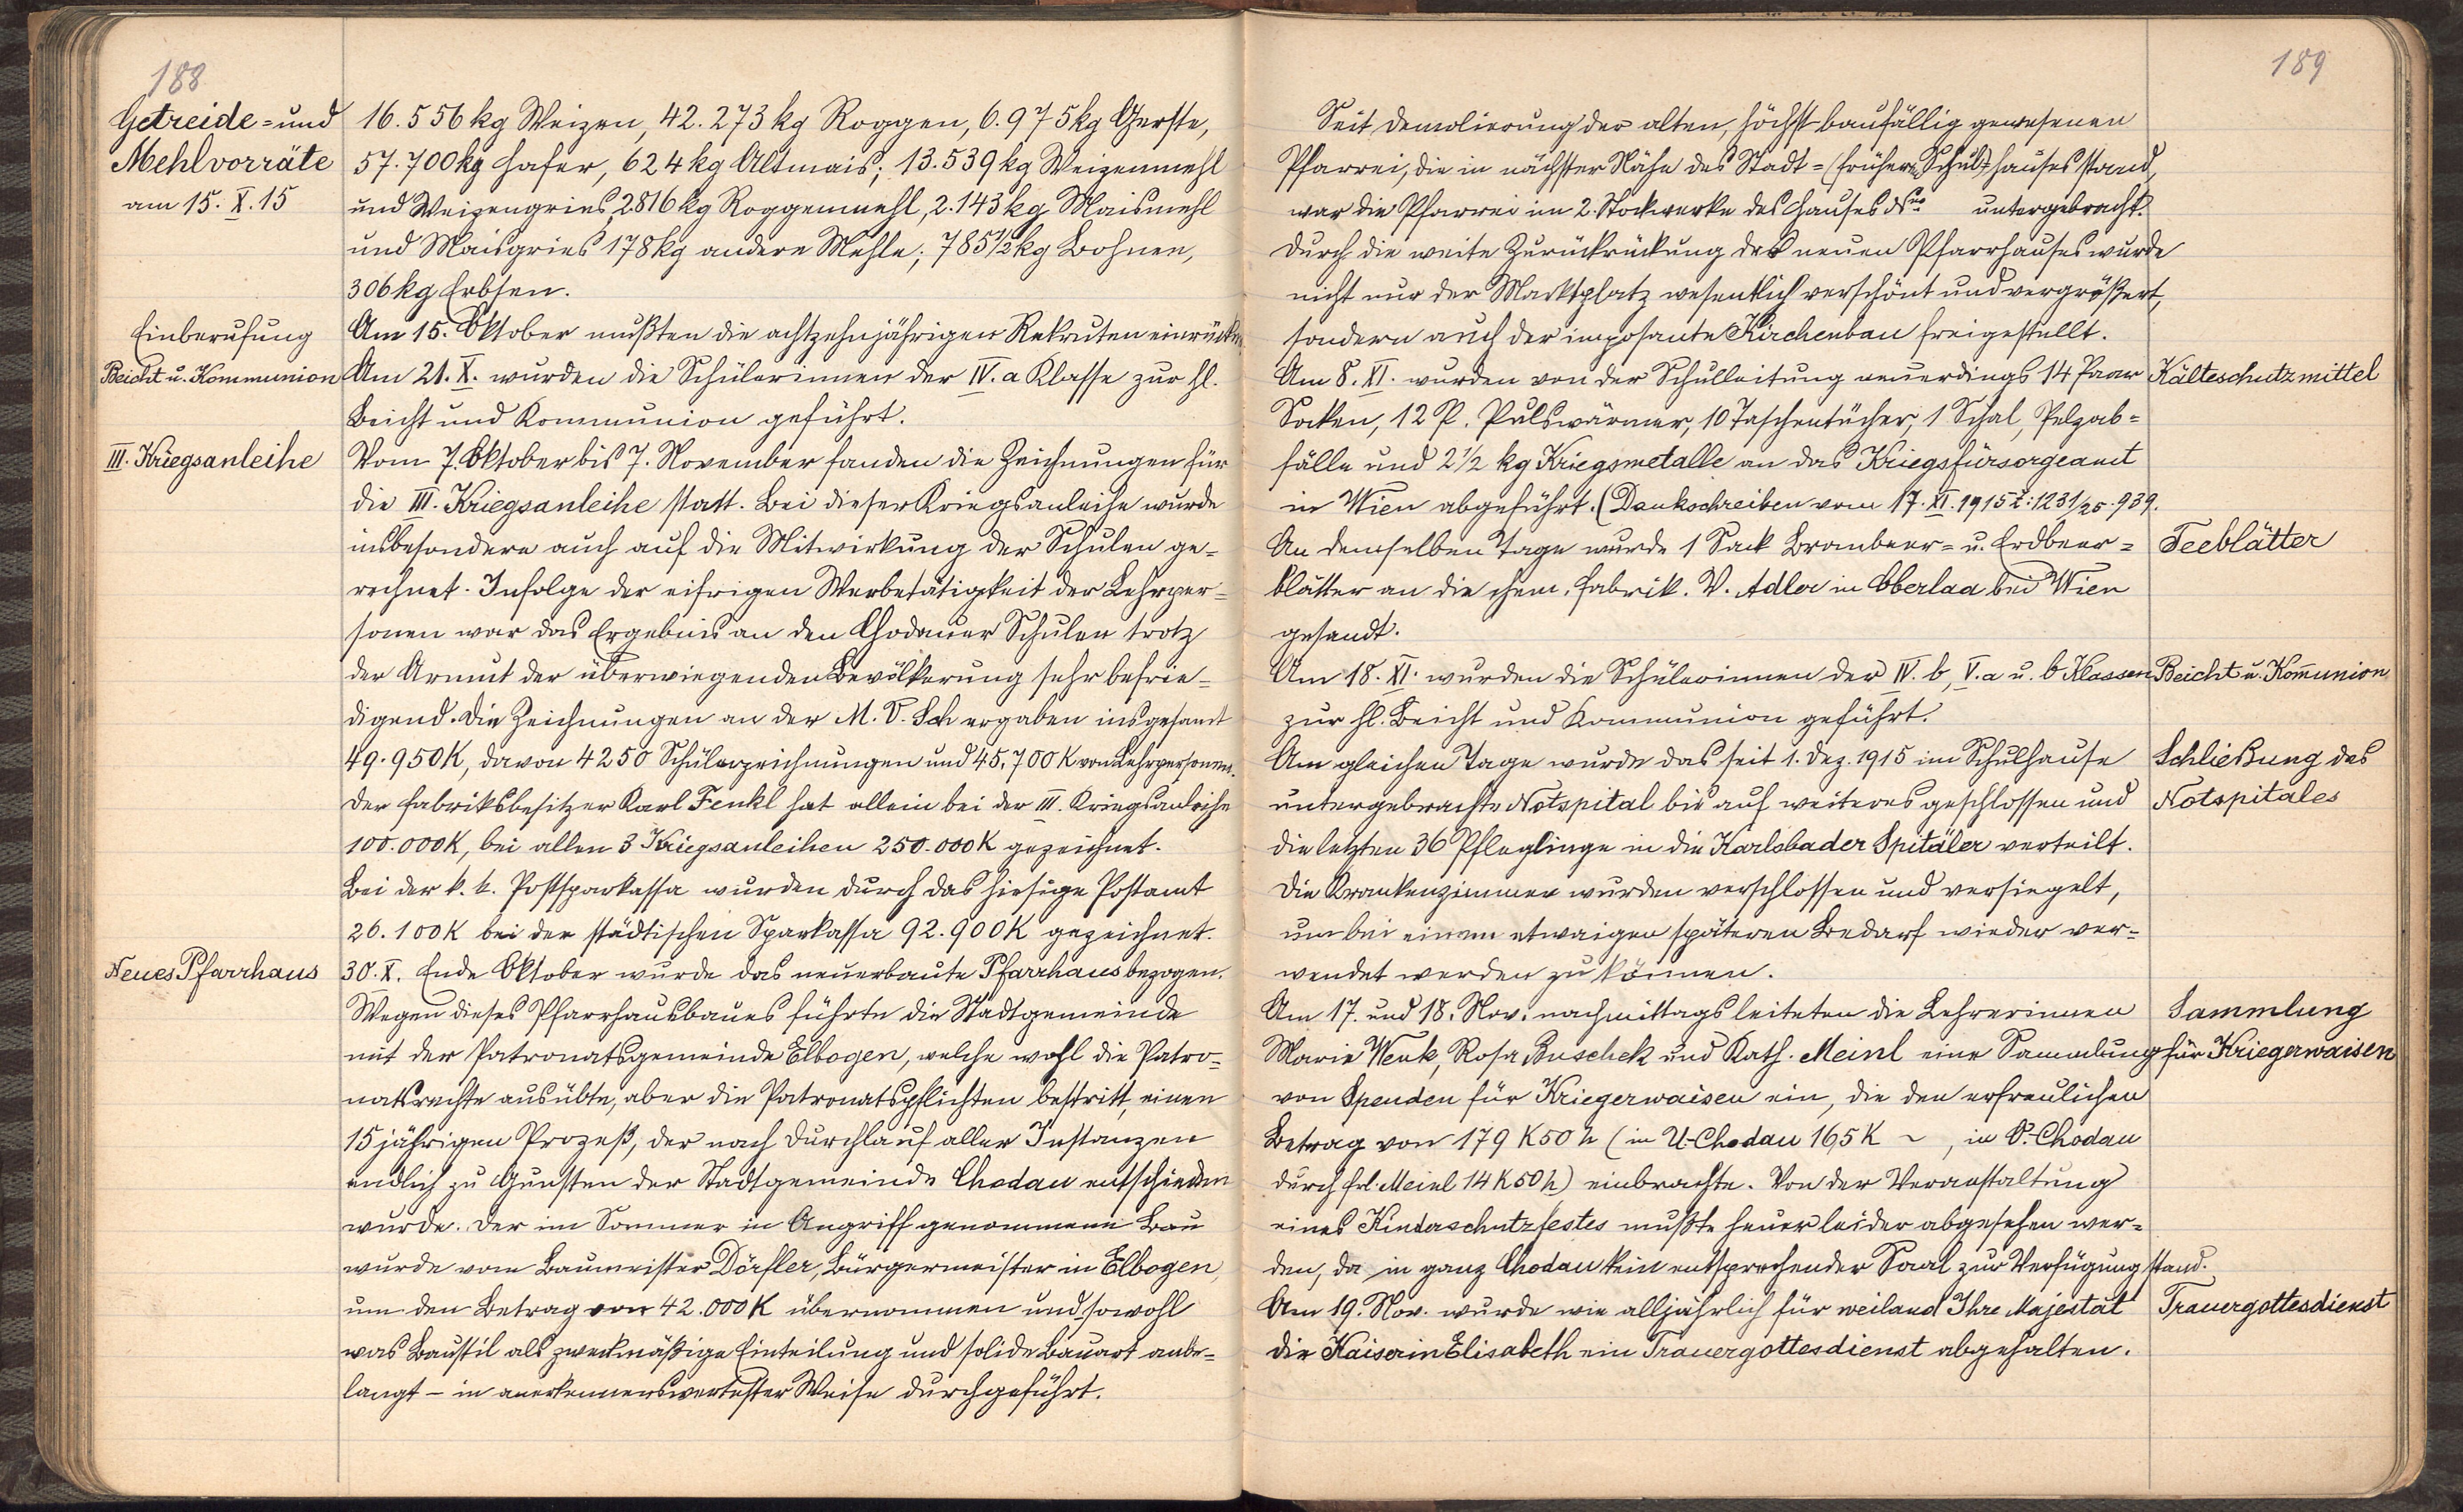 188
Getreide= und
Mehlvorräte
am 15. X. 15
16.556 kg Weizen, 42.273 kg Roggen, 6.975 kg Gerste,
57.700 kg Hafer, 624 kg Altmais; 13.539 kg Weizenmehl
und Weizengries, 2816 kg Roggenmehl, 2.143 kg Maismehl
und Maisgries 178 kg andere Mehle; 785 1/2 kg Bohnen,
306 kg Erbsen.
Einberufung
Am 15. Oktober mußten die achtzehnjährigen Rekruten einrücken.
Beicht u. Kommunion
Am 21. X. wurden die Schülerinnen der IV. a Klasse zur hl.
Beicht und Kommunion geführt.
III. Kriegsanleihe
Vom 7. Oktober bis 7. November fanden die Zeichnungen für
die III. Kriegsanleihe statt. Bei dieser Kriegsanleihe wurde
insbesondere auch auf die Mitwirkung der Schulen ge=
rechnet. Infolge der eifrigen Werbetätigkeit der Lehrper=
sonen war das Ergebnis an den Chodauer Schulen trotz
der Armut der überwiegenden Bevölkerung sehr befrie=
digend. Die Zeichnungen an der M. V. Sch ergaben insgesamt
49.950 K, davon 4250 Schülerzeichnungen und 45.700 K von Lehrpersonen.
Der Fabriksbesitzer Karl Fenkl hat allein bei der III. Kriegsanleihe
100.000 K, bei allen 3 Kriegsanleihen 250.000 K gezeichnet.
Bei der k. k. Postsparkassa wurden durch das hiesige Postamt
26.100 K bei der städtischen Sparkassa 92.900 K gezeichnet.
Neues Pfarrhaus
30. X. Ende Oktober wurde das neuerbaute Pfarrhaus bezogen.
Wegen dieses Pfarrhausbaues führte die Stadtgemeinde
mit der Patronatsgemeinde Elbogen, welche wohl die Patro=
natsrechte ausübte, aber die Patronatspflichten bestritt, einen
15 jährigen Prozeß, der nach Durchlauf aller Instanzen
endlich zu Gunsten der Stadtgemeinde Chodau entschieden
wurde. Der im Sommer in Angriff genommene Bau
wurde vom Baumeister Dörfler, Bürgermeister in Elbogen,
um den Betrag von 42.000 K übernommen und sowohl
was Baustil als zweckmäßige Einteilung und solide Bauart anbe=
langt – in anerkennenswertester Weise durchgeführt.
189
Seit Demolierung der alten, höchst baufällig gewesenen
Pfarrei, die in nächster Nähe des Stadt= (früheren Schul)hauses stand,
war die Pfarrei im 2. Stockwerke des Hauses untergebracht.
Durch die weite Zurückrückung des neuen Pfarrhauses wurde
nicht nur der Marktplatz wesentlich verschönt und vergrößert,
sondern auch der imposante Kirchenbau freigestellt.
Am 8. XI. wurden von der Schulleitung neuerdings 14 Paar
Kälteschutzmittel
Socken, 12 P. Pulswärmer, 10 Taschentücher, 1 Schal, Pelzab=
fälle und 2 1/2 kg Kriegsmetalle an das Kriegsfürsorgeamt
in Wien abgeführt. (Dankschreiben vom 17. XI. 1915 Z: 1231/25.939.
An demselben Tage wurde 1 Sack Brombeer= u. Erdbeer=
Teeblätter
blätter an die chem. Fabrik. V. Adler in Oberlaa bei Wien
gesandt.
Am 18. XI. wurden die Schülerinnen der IV. b, V. a u. b Klassen
Beicht u. Kom̄union
zur hl. Beicht und Kommunion geführt.
Am gleichen Tage wurde das seit 1. Dez. 1915 im Schulhause
Schließung des
untergebrachte Notspital bis auf weiteres geschlossen und
Notspitales
die letzten 36 Pfleglinge in die Karlsbader Spitäler verteilt.
Die Krankenzimmer wurden verschlossen und versiegelt,
um bei einem etwaigen späteren Bedarf wieder ver=
wendet werden zu können.
Am 17. und 18. Nov. nachmittags leiteten die Lehrerinnen
Sammlung
Marie Wenk, Rosa Buschek und Kath. Meinl eine Sammlung
für Kriegerwaisen
von Spenden für Kriegerwaisen ein, die den erfreulichen
Betrag von 179 K 50 h (in U.-Chodau 165 K ~, in O.-Chodau
durch Frl. Meinl 14 K 50 h) einbrachte. Von der Veranstaltung
eines Kinderschutzfestes mußte heuer leider abgesehen wer=
den, da in ganz Chodau kein entsprechender Saal zur Verfügung stand.
Am 19. Nov. wurde wie alljährlich für weiland Ihre Majestät
Trauergottesdienst
die Kaiserin Elisabeth ein Trauergottesdienst abgehalten.